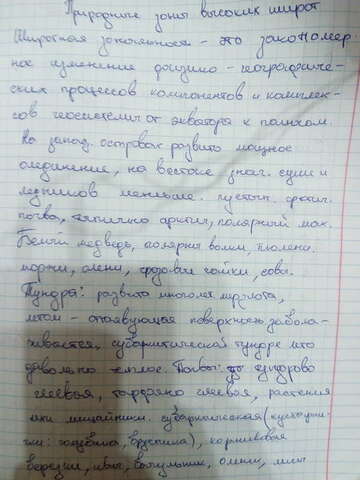 Природные зоны высоких широт
Широтная зональность - это закономер
ное изменение физико - географиче-
ских процессов компонентов и комплек-
сов геосистемы от экватора к полюсам.
На запад. островах развито мощное
оледенение, на востоке знач. суши и
ледников меньше. пустын. фоти.
почва, типично арктич, полярный мак.
Белый медведь, полярные волки, тюлени.
моржи, олени, чайки, совы.
Тундра: развита многолет мерзлота,
летом - оттаивающая поверхность забола-
чивается, субарктической тундре лето
довольно теплое. Почвы: тундрово
глеевая, торфяно глеевая, растения
мхи лишайники. субарктическая (кустарни-
чки: голубика, брусника), карликовая
березки, ивы, багульник, олени, лисы